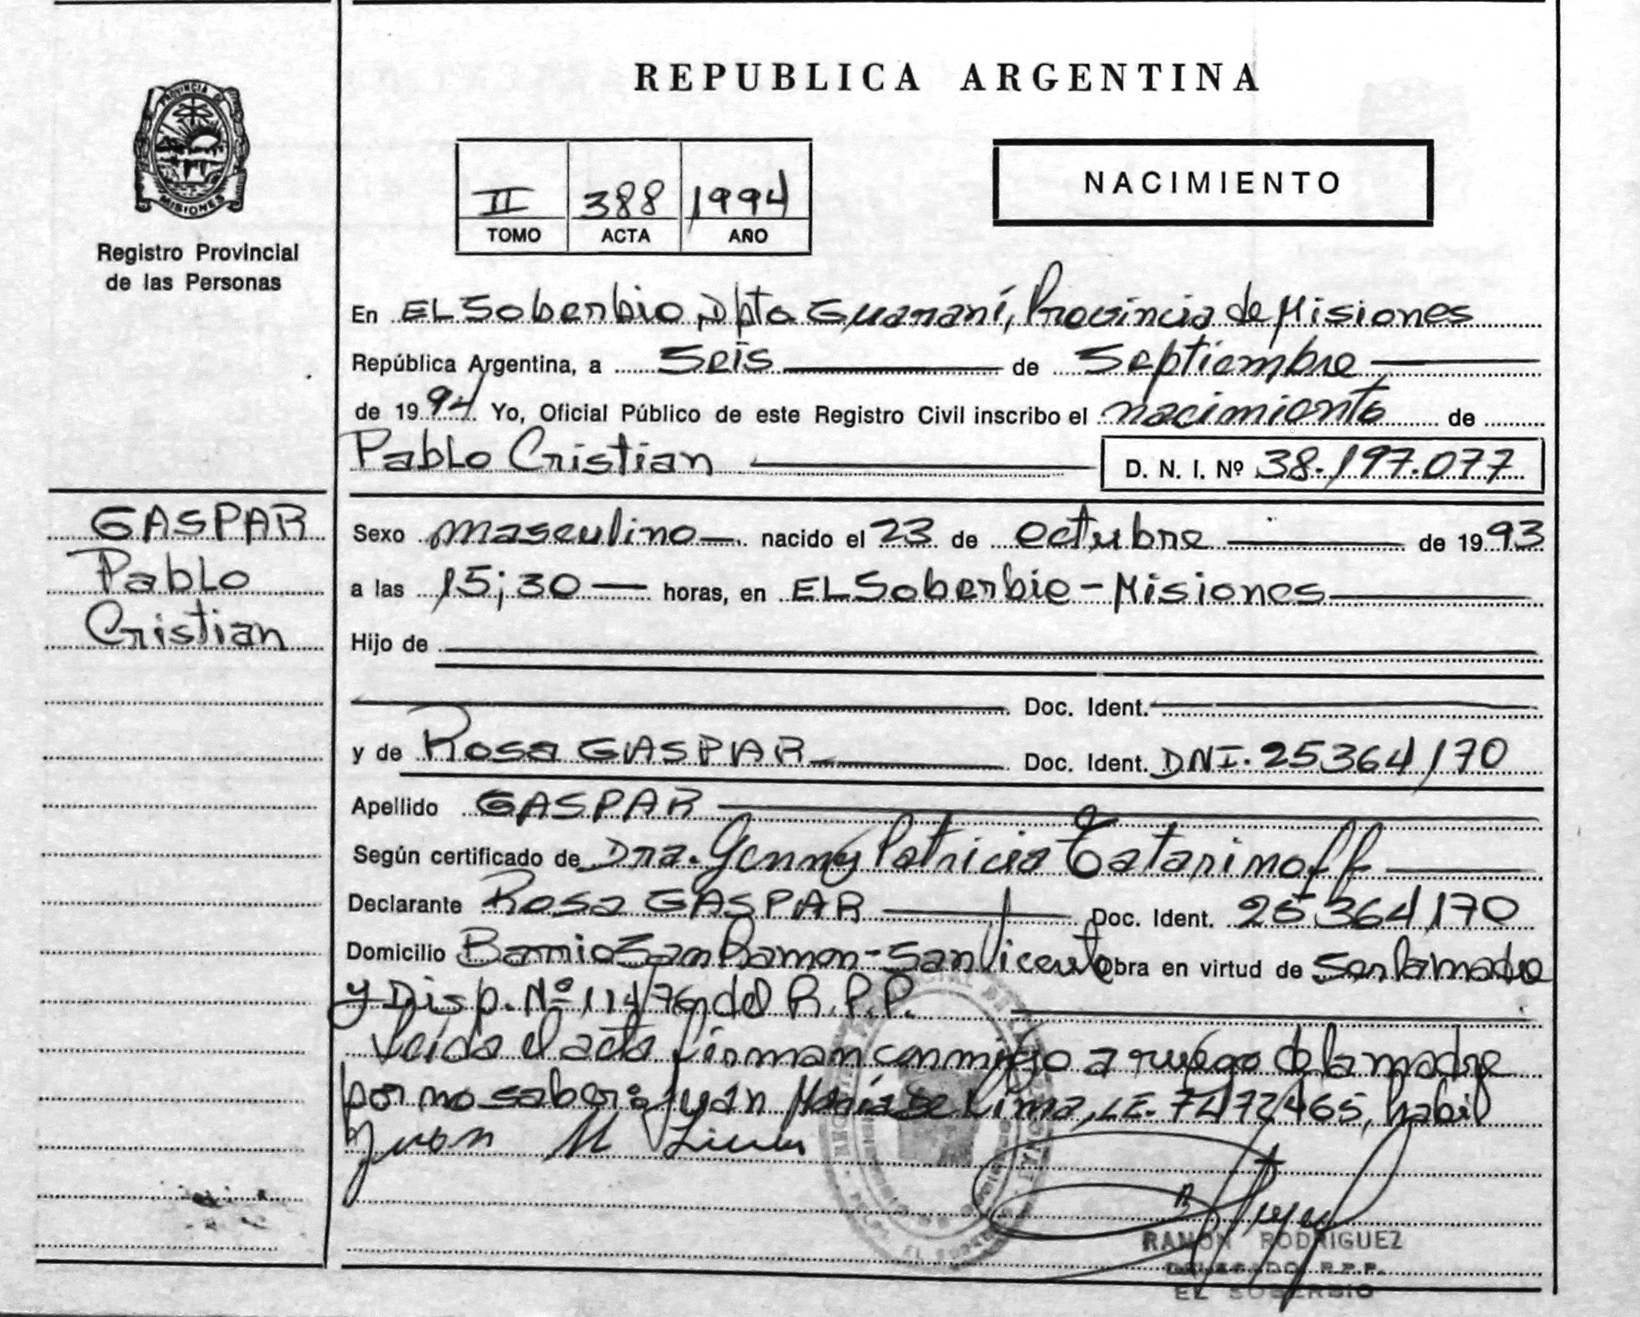 REPUBLICA ARGENTINA
PROVINCIA DE
MISIONES
Registro Provincial
de las Personas
II 388 1994
TOMO ACTA AÑO
NACIMIENTO
En EL Soberbio, Dpto Guaraní, Provincia de Misiones
República Argentina, a Seis de Septiembre
de 1994 Yo, Oficial Público de este Registro Civil inscribo el nacimiento de
Pablo Cristian D. N. I. Nº 38.197.077
GASPAR
Pablo
Cristian
Sexo masculino nacido el 23 de octubre de 1993
a las 15;30 horas, en EL Soberbio - Misiones
Hijo de
Doc. Ident.
y de Rosa GASPAR Doc. Ident. DNI. 25364170
Apellido GASPAR
Según certificado de Dra. Genny Patricia Tatarinoff
Declarante Rosa GASPAR Doc. Ident. 25364170
Domicilio Barrio San Ramon - San Vicente Obra en virtud de Ser la madre
y Disp. Nº 114/76 del R.P.P.
Leída el acta firman conmigo a ruego de la madre
por no saber: Juan María De Lima, LE. 7472465, habil
Juan M Lima
RAMON RODRIGUEZ
DELEGADO R.P.P.
EL SOBERBIO